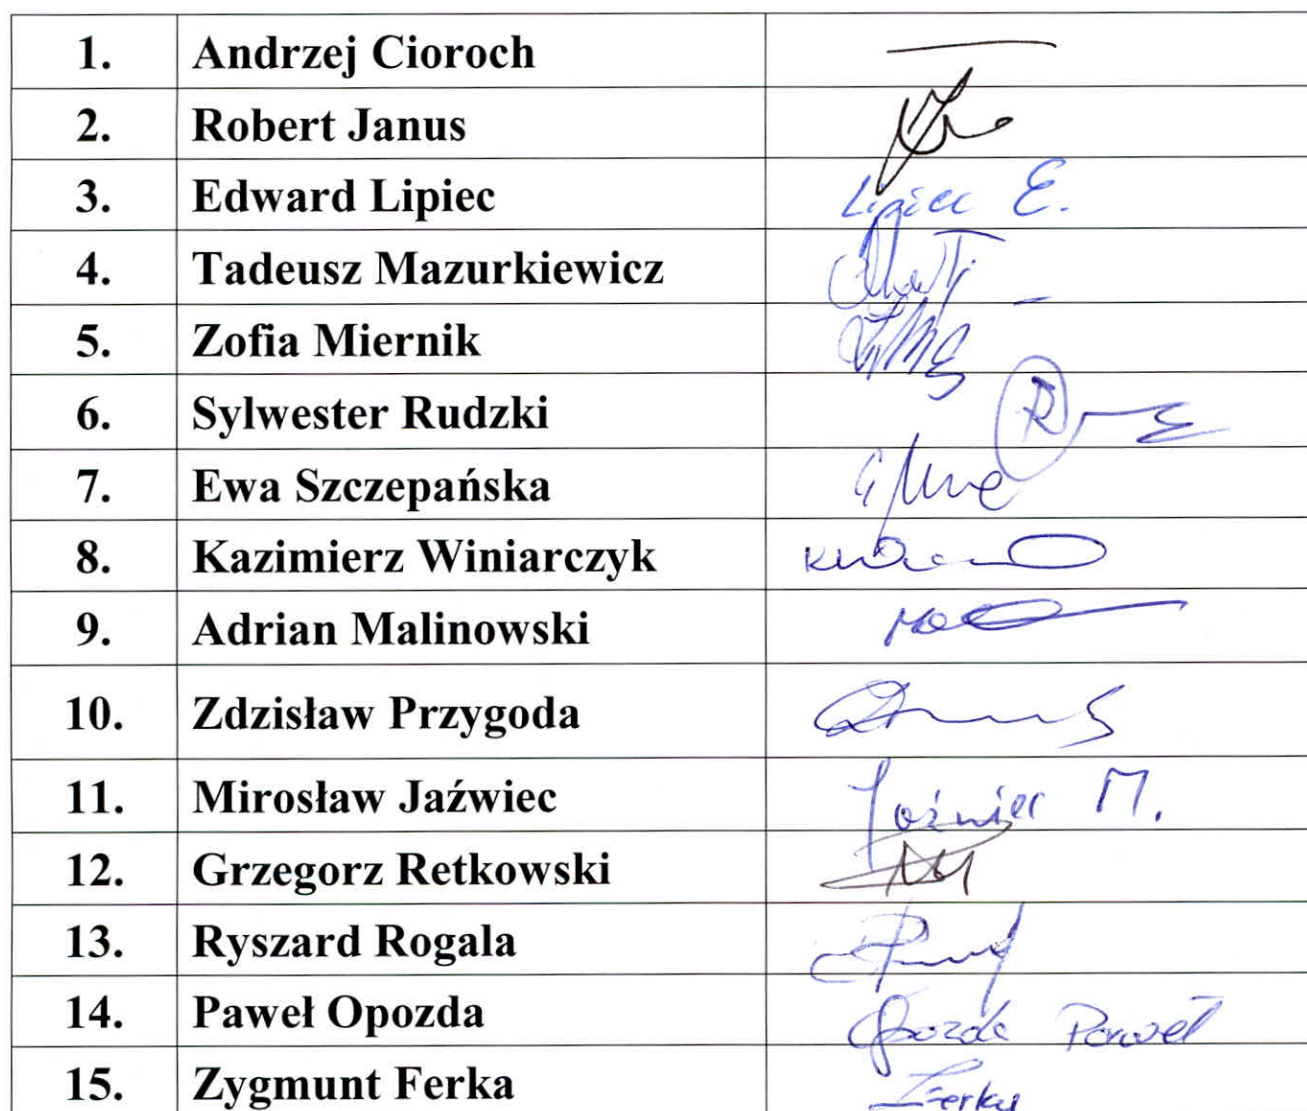 1. Andrzej Cioroch
2. Robert Janus
3. Edward Lipiec Lipiec E.
4. Tadeusz Mazurkiewicz
5. Zofia Miernik
6. Sylwester Rudzki
7. Ewa Szczepańska
8. Kazimierz Winiarczyk
9. Adrian Malinowski
10. Zdzisław Przygoda
11. Mirosław Jaźwiec Jaźwiec M.
12. Grzegorz Retkowski
13. Ryszard Rogala
14. Paweł Opozda Opozda Paweł
15. Zygmunt Ferka ZFerka